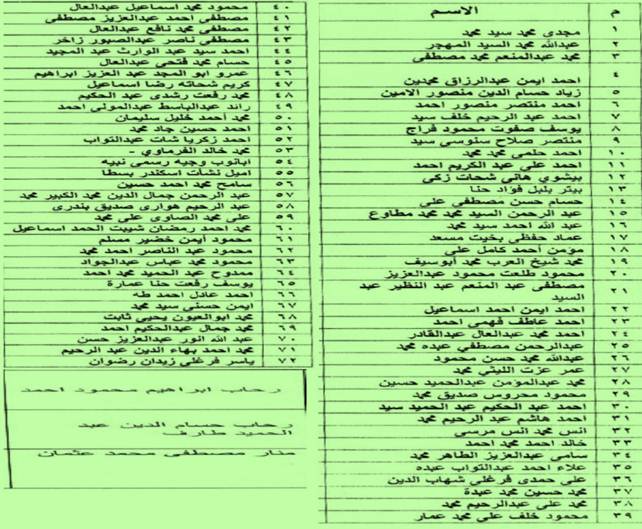 م الاسم
١ مجدى محمد سيد محمد
٢ عبدالله محمد السيد المهجر
٣ محمد عبدالمنعم محمد مصطفى
٤ احمد ايمن عبدالرزاق محمدين
٥ زياد حسام الدين منصور الامين
٦ احمد منتصر منصور احمد
٧ احمد عبد الرحيم خلف سيد
٨ يوسف صفوت محمود فراج
٩ منتصر صلاح سنوسى سيد
١٠ احمد حلمى محمد محمد
١١ احمد على عبد الكريم احمد
١٢ بيشوي هانى شحات زكى
١٣ بيتر بلبل فؤاد حنا
١٤ حسام حسن مصطفى على
١٥ عبد الرحمن السيد محمد محمد مطاوع
١٦ عبد الله احمد سيد محمد
١٧ عماد حفظى بخيت مسعد
١٨ مؤمن احمد كامل على
١٩ محمد شيخ العرب محمد أبوسيف
٢٠ محمود طلعت محمود عبدالعزيز
٢١ مصطفى عبد المنعم عبد النظير عبد
السيد
٢٢ احمد ايمن احمد اسماعيل
٢٣ احمد عاطف فهمى احمد
٢٤ احمد محمد عبدالعال عبدالقادر
٢٥ عبدالرحمن مصطفى عبده محمد
٢٦ عبدالله محمد حسن محمود
٢٧ عمر عزت الليثى محمد
٢٨ محمد عبدالمؤمن عبدالحميد حسين
٢٩ محمود محروس صديق محمد
٣٠ احمد عبد الحكيم عبد الحميد سيد
٣١ احمد هاشم عبد الرحيم محمد
٣٢ انس محمد انس مرسى
٣٣ خالد احمد محمد احمد
٣٤ سامى عبدالعزيز الطاهر محمد
٣٥ علاء احمد عبدالتواب عبده
٣٦ على حمدى فرغلى شهاب الدين
٣٧ محمد حسين محمد عبدة
٣٨ محمد على عبدالرحيم محمد
٣٩ محمود خلف على محمد عمار
٤٠ محمود محمد اسماعيل عبدالعال
٤١ مصطفى احمد عبدالعزيز مصطفى
٤٢ مصطفى محمد نافع عبدالعال
٤٣ مصطفى ناصر عبدالصبور زاخر
٤٤ احمد سيد عبد الوارث عبد المجيد
٤٥ حسام محمد فتحى عبدالعال
٤٦ عمرو ابو المجد عبد العزيز ابراهيم
٤٧ كريم شحاته رضا اسماعيل
٤٨ محمد رفعت رشدى عبد الحكيم
٤٩ رائد عبدالباسط عبدالمولى احمد
٥٠ محمد احمد خليل سليمان
٥١ احمد حسين جاد محمد
٥٢ احمد زكريا شات عبدالتواب
٥٣ محمد خالد الفرماوي -
٥٤ ابانوب وجيه رسمى نبيه
٥٥ اميل نشأت اسكندر بسطا
٥٦ سامح محمد احمد حسين
٥٧ عبد الرحمن جمال الدين محمد الكبير محمد
٥٨ عبد الرحيم هوارى صديق بندرى
٥٩ على محمد الصاوى على محمد
٦٠ محمد احمد رمضان شيبت الحمد اسماعيل
٦١ محمود أيمن خضير مسلم
٦٢ محمود عبد الناصر احمد محمد
٦٣ محمود محمد عباس عبدالجواد
٦٤ ممدوح عبد الحميد محمد احمد
٦٥ يوسف رفعت حنا عمارة
٦٦ احمد عادل احمد طه
٦٧ ايمن حسنى سيد محمد
٦٨ محمد ابوالعيون يحيى ثابت
٦٩ محمد جمال عبدالحكيم احمد
٧٠ عبد الله انور عبدالعزيز حسن
٧١ محمد احمد بهاء الدين عبد الرحيم
٧٢ ياسر فرغلى زيدان رضوان
رحاب ابراهيم محمود احمد
رحاب حسام الدين عبد
الحميد طارف
منار مصطفى محمد عثمان